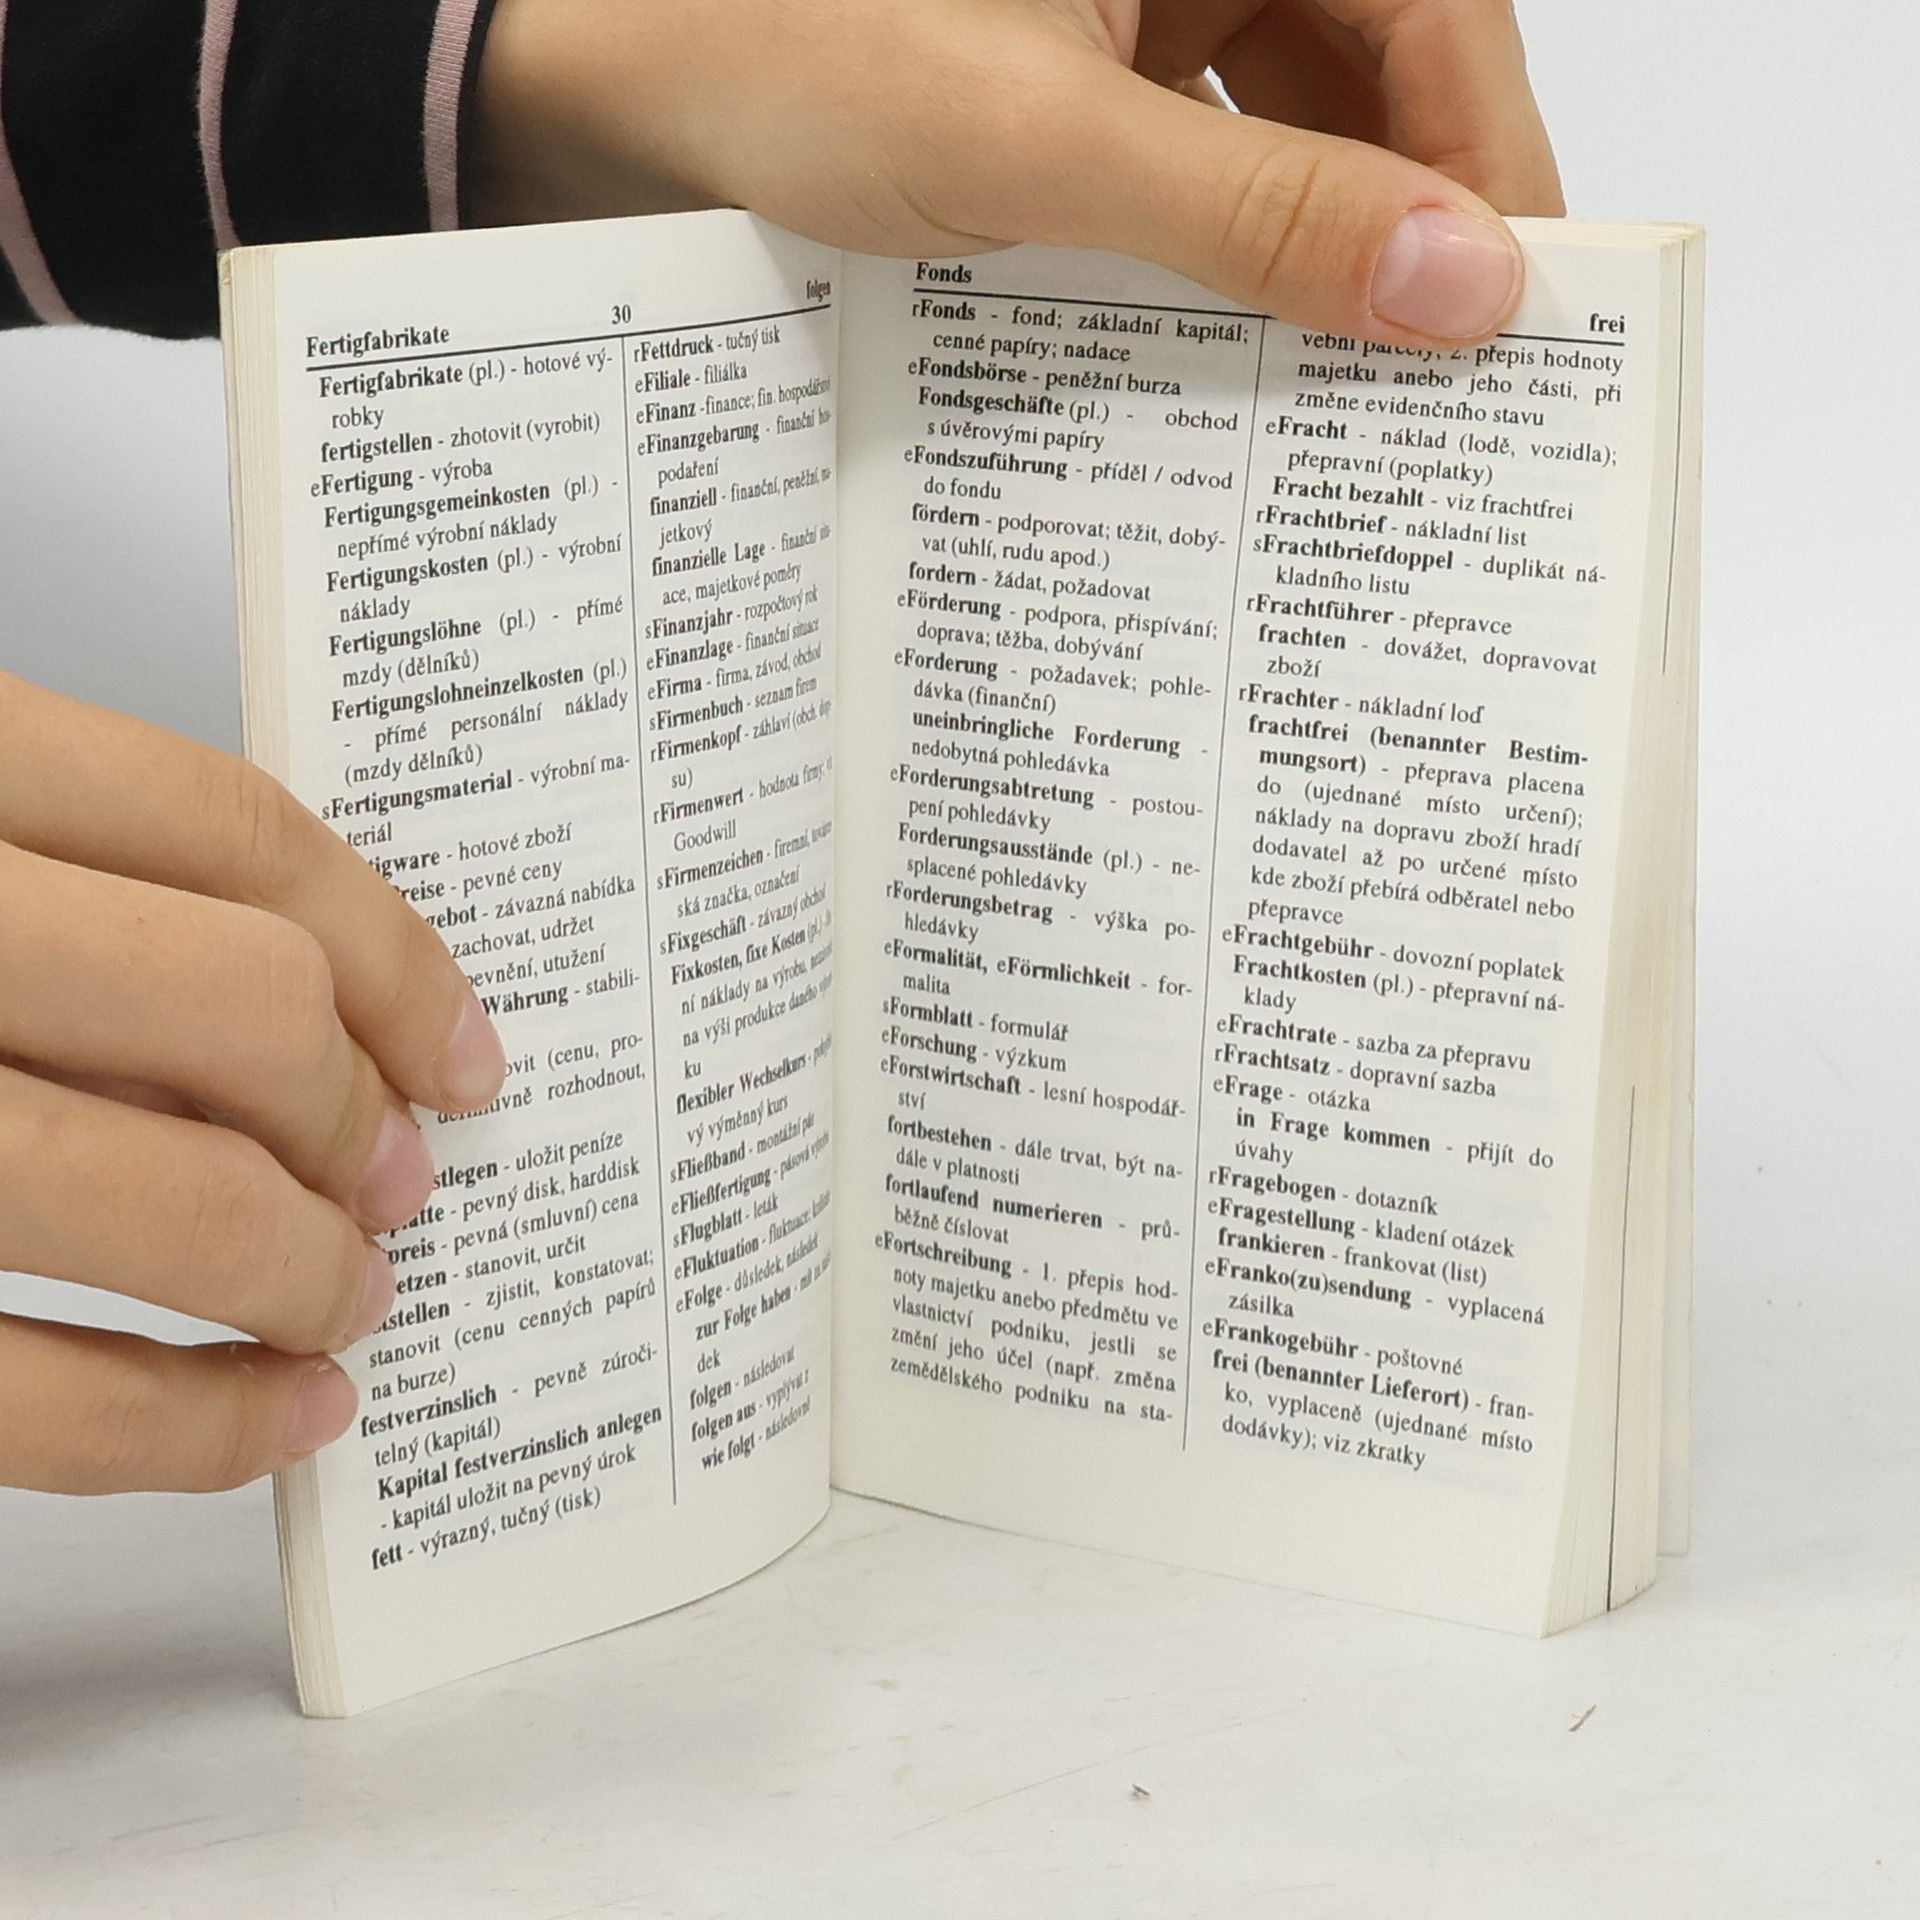 Fertigfabrikate 30 folgen
Fertigfabrikate (pl.) - hotové vý-
robky
fertigstellen - zhotovit (vyrobit)
eFertigung - výroba
Fertigungsgemeinkosten (pl.) -
nepřímé výrobní náklady
Fertigungskosten (pl.) - výrobní
náklady
Fertigungslöhne (pl.) - přímé
mzdy (dělníků)
Fertigungslohneinzelkosten (pl.)
- přímé personální náklady
(mzdy dělníků)
sFertigungsmaterial - výrobní ma-
teriál
tigware - hotové zboží
reise - pevné ceny
gebot - závazná nabídka
zachovat, udržet
pevnění, utužení
Währung - stabili-
ovit (cenu, pro-
rozhodnout,
stlegen - uložit peníze
platte - pevný disk, harddisk
preis - pevná (smluvní) cena
etzen - stanovit, určit
tstellen - zjistit, konstatovat;
stanovit (cenu cenných papírů
na burze)
festverzinslich - pevně zúroči-
telný (kapitál)
Kapital festverzinslich anlegen
- kapitál uložit na pevný úrok
fett - výrazný, tučný (tisk)
rFettdruck - tučný tisk
eFiliale - filiálka
eFinanz -finance; fin. hospodářství
eFinanzgebarung - finanční hos-
podaření
finanziell - finanční, peněžní, ma-
jetkový
finanzielle Lage - finanční situ-
ace, majetkové poměry
sFinanzjahr - rozpočtový rok
eFinanzlage - finanční situace
eFirma - firma, závod, obchod
sFirmenbuch - seznam firem
rFirmenkopf - záhlaví (obch. dopi-
su)
rFirmenwert - hodnota firmy,
Goodwill
sFirmenzeichen - firemní, továrn
ská značka, označení
sFixgeschäft - závazný obchod
Fixkosten, fixe Kosten (pl.) -
ní náklady na výrobu,
na výši produkce daného
ku
flexibler Wechselkurs -
vý výměnný kurs
sFließband - montážní pás
eFließfertigung - pásová výroba
sFlugblatt - leták
eFluktuation - fluktuace;
eFolge - důsledek, následek
zur Folge haben - mít za
dek
folgen - následovat
folgen aus - vyplývat z
wie folgt - následovně
Fonds frei
rFonds - fond; základní kapitál;
cenné papíry; nadace
eFondsbörse - peněžní burza
Fondsgeschäfte (pl.) - obchod
s úvěrovými papíry
eFondszuführung - příděl / odvod
do fondu
fördern - podporovat; těžit, dobý-
vat (uhlí, rudu apod.)
fordern - žádat, požadovat
eFörderung - podpora, přispívání;
doprava; těžba, dobývání
eForderung - požadavek; pohle-
dávka (finanční)
uneinbringliche Forderung -
nedobytná pohledávka
eForderungsabtretung - postou-
pení pohledávky
Forderungsausstände (pl.) - ne-
splacené pohledávky
rForderungsbetrag - výška po-
hledávky
eFormalität, eFörmlichkeit - for-
malita
sFormblatt - formulář
eForschung - výzkum
eForstwirtschaft - lesní hospodář-
ství
fortbestehen - dále trvat, být na-
dále v platnosti
fortlaufend numerieren - prů-
běžně číslovat
eFortschreibung - 1. přepis hod-
noty majetku anebo předmětu ve
vlastnictví podniku, jestli se
změní jeho účel (např. změna
zemědělského podniku na sta-
vební parcely; 2. přepis hodnoty
majetku anebo jeho části, při
změne evidenčního stavu
eFracht - náklad (lodě, vozidla);
přepravní (poplatky)
Fracht bezahlt - viz frachtfrei
rFrachtbrief - nákladní list
sFrachtbriefdoppel - duplikát ná-
kladního listu
rFrachtführer - přepravce
frachten - dovážet, dopravovat
zboží
rFrachter - nákladní loď
frachtfrei (benannter Bestim-
mungsort) - přeprava placena
do (ujednané místo určení);
náklady na dopravu zboží hradí
dodavatel až po určené místo
kde zboží přebírá odběratel nebo
přepravce
eFrachtgebühr - dovozní poplatek
Frachtkosten (pl.) - přepravní ná-
klady
eFrachtrate - sazba za přepravu
rFrachtsatz - dopravní sazba
eFrage - otázka
in Frage kommen - přijít do
úvahy
rFragebogen - dotazník
eFragestellung - kladení otázek
frankieren - frankovat (list)
eFranko(zu)sendung - vyplacená
zásilka
eFrankogebühr - poštovné
frei (benannter Lieferort) - fran-
ko, vyplaceně (ujednané místo
dodávky); viz zkratky